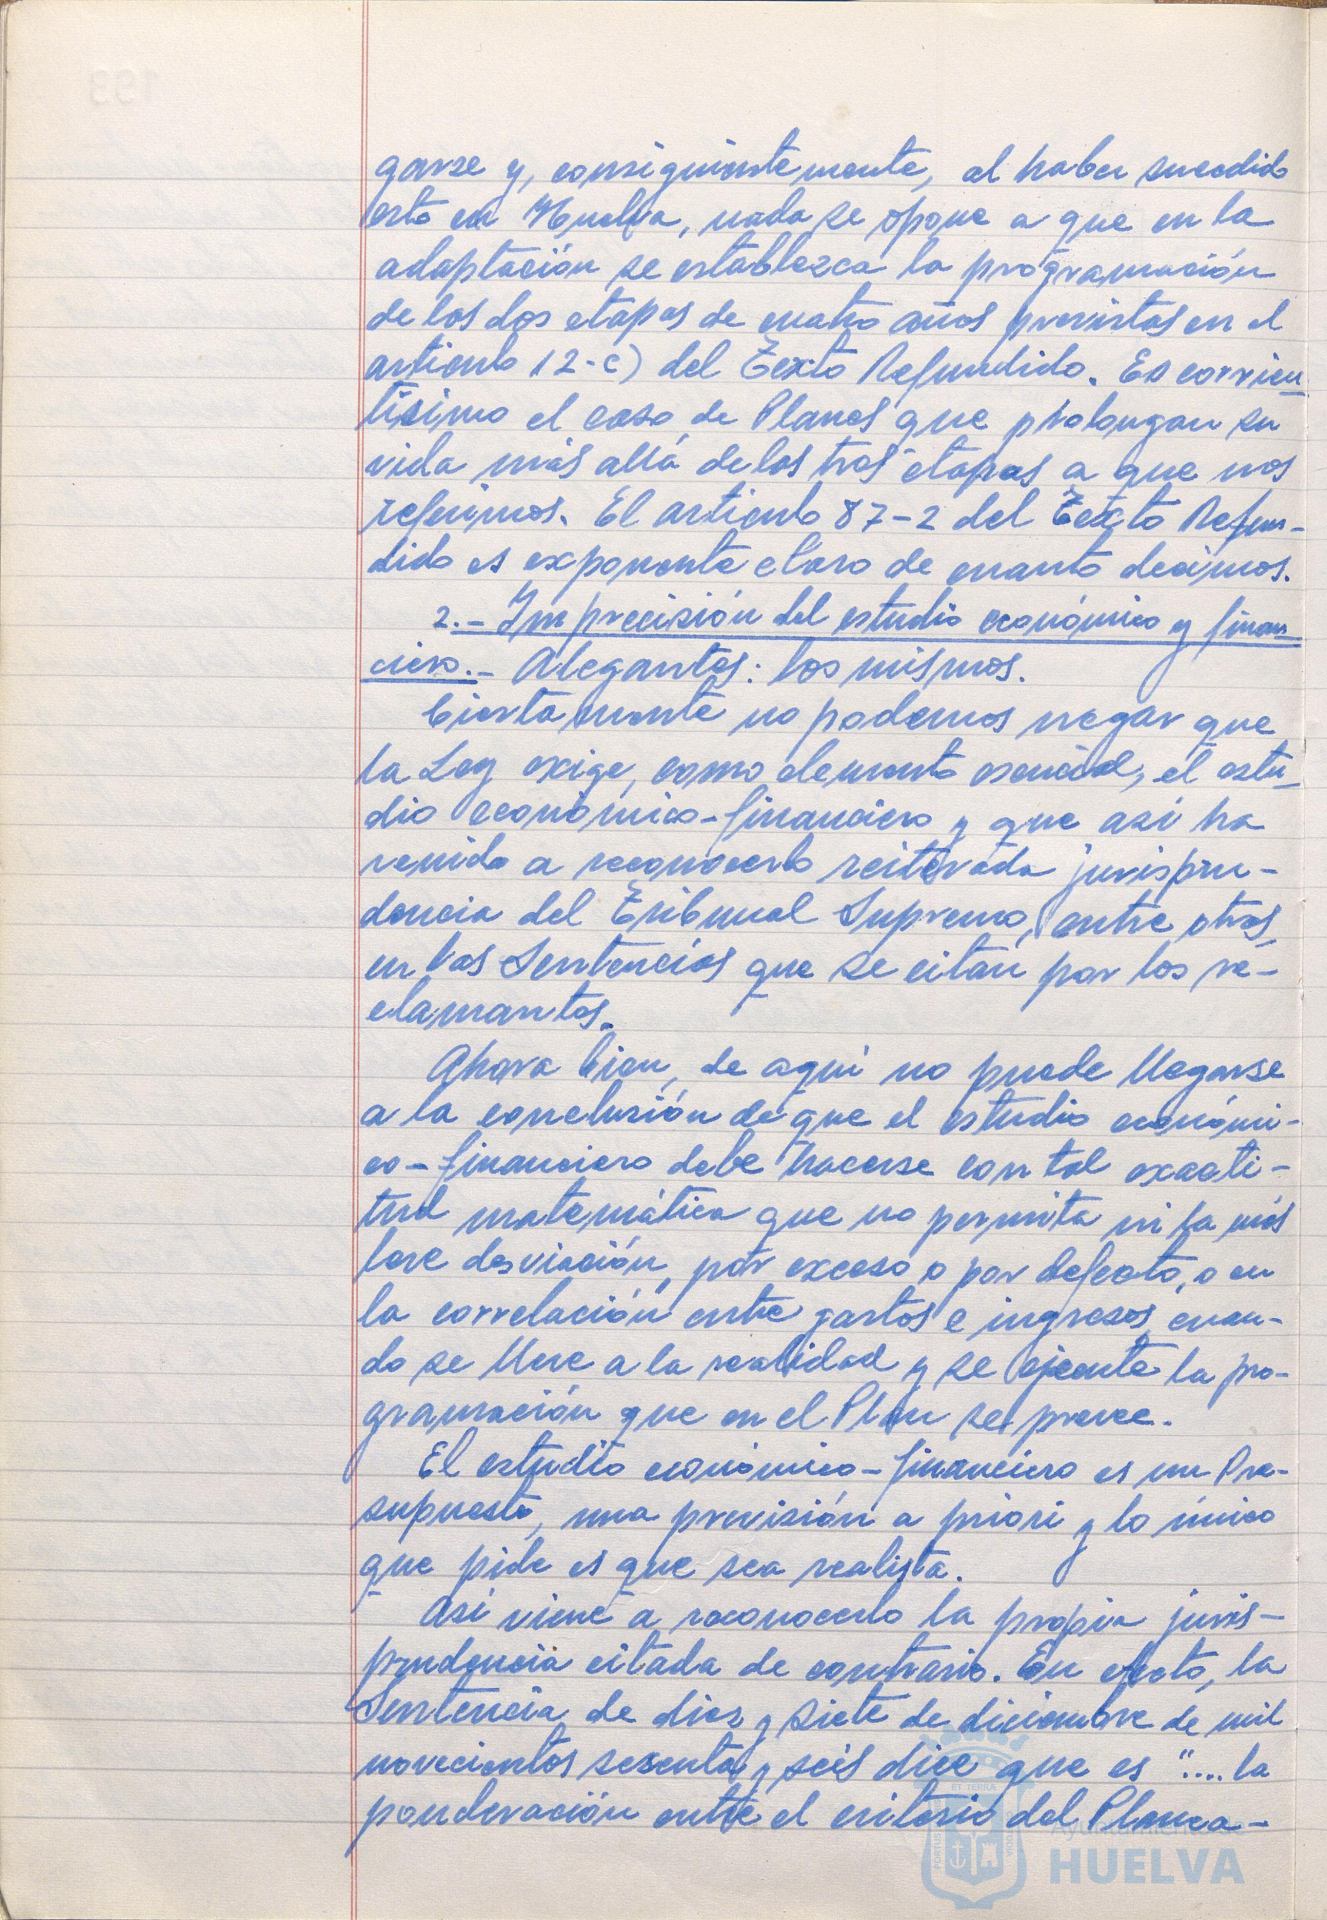 garse y, consiguientemente, al haber sucedido
esto en Huelva, nada se opone a que en la
adaptación se establezca la programación
de los dos etapas de cuatro años previstas en el
articulo 12-c) del Texto Refundido. Es corrien-
tísimo el caso de Planes que prolongan su
vida más allá de las tres etapas a que nos
referimos. El articulo 87-2 del Texto Refun-
dido es exponente claro de cuanto decimos.
2.- Imprecisión del estudio económico y finan-
ciero.- Alegantes: los mismos.
Ciertamente no podemos negar que
la Ley exige, como elemento esencial, el estu-
dio económico-financiero y que así ha
venido a reconocerlo reiterada jurispru-
dencia del Tribunal Supremo, entre otras,
en las Sentencias que se citan por los re-
clamantes.
Ahora bien, de aquí no puede llegarse
a la conclusión de que el estudio económi-
co-financiero debe hacerse con tal exacti-
tud matemática que no permita ni la más
leve desviación, por exceso o por defecto, o en
la correlación entre gastos e ingresos, cuan-
do se lleve a la realidad y se ejecute la pro-
gramación que en el Plan se prevee.
El estudio económico-financiero es un Pre-
supuesto, una previsión a priori y lo único
que pide es que sea realista.
Así viene a reconocerlo la propia juris-
prudencia citada de contrario. En efecto, la
Sentencia de diez y siete de diciembre de mil
novecientos sesenta y seis dice que es ".... la
ponderación entre el criterio del Planea-
Ayuntamiento de
HUELVA